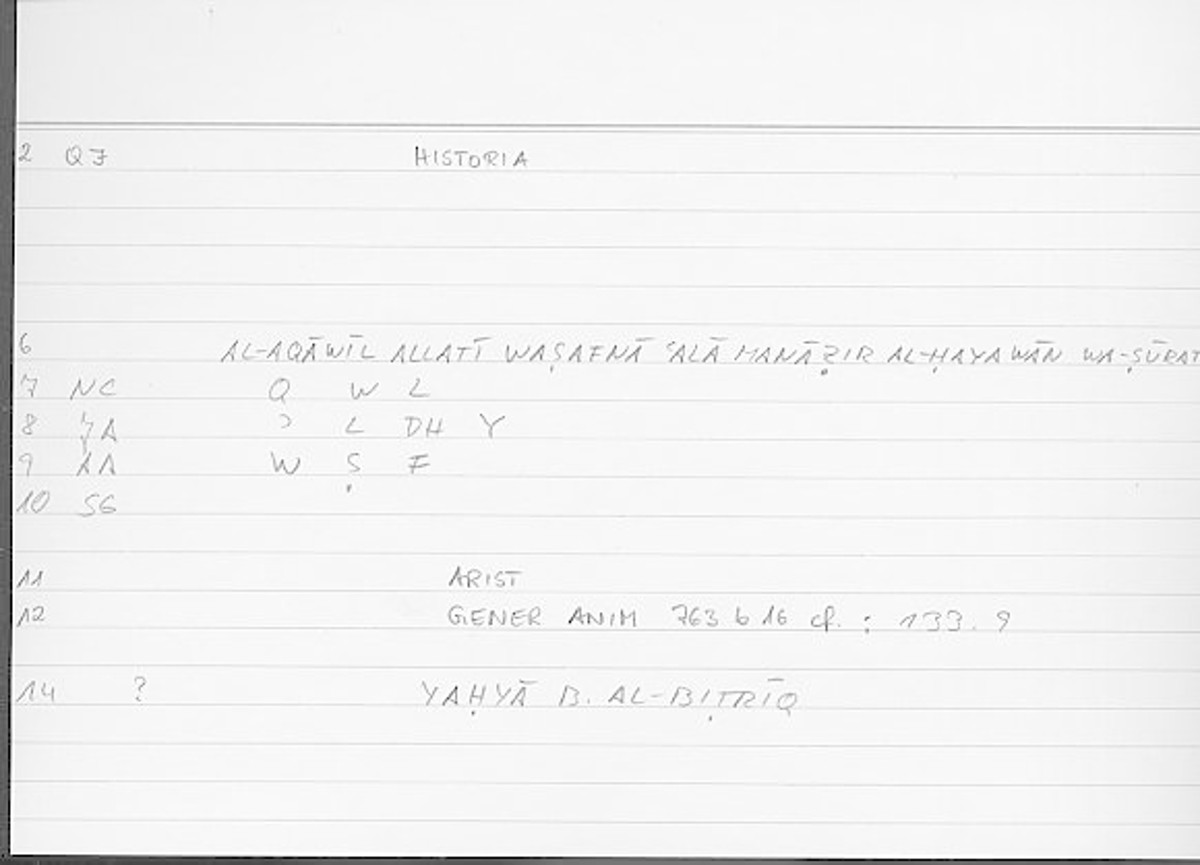 2 Q7 HISTORIA
6 AL-AQĀWĪL ALLATĪ WAṢAFNĀ ʿALĀ MANĀẒIR AL-ḤAYAWĀN WA-ṢŪRAT
7 NC Q W L
8 ʾ L DH Y
9 W Ṣ F
10 SG
11 ARIST
12 GENER ANIM 763 b 16 cf. : 133.9
14 ? YAḤYĀ B. AL-BIṬRĪQ